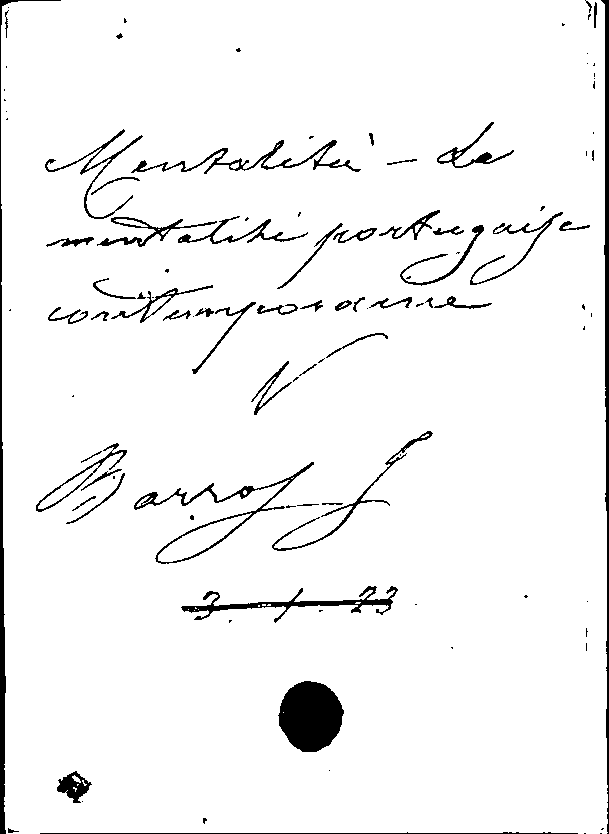 Mentalité - La
mentalité portugaise
contemporaine
V
Barros J
3. 1. 23